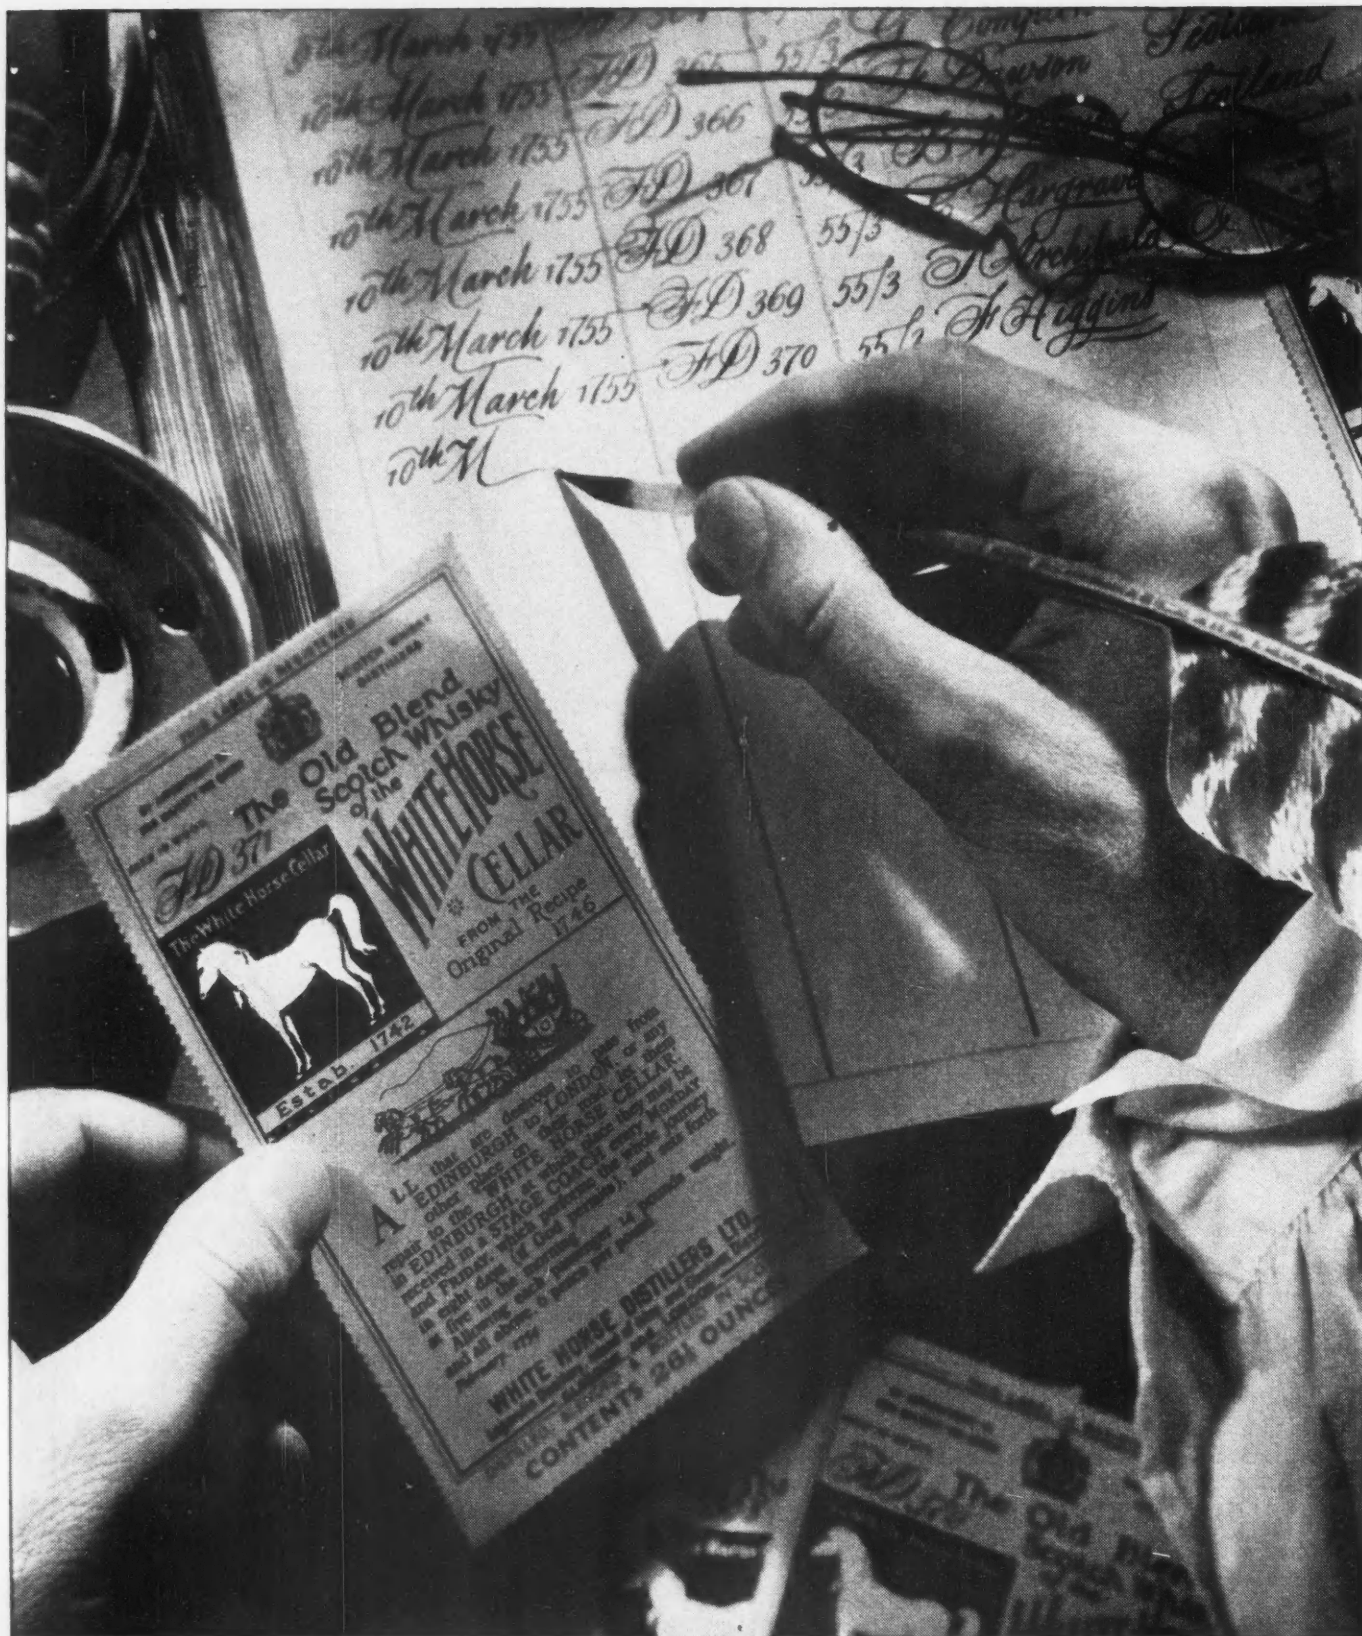 9th March 1755
10th March 1755 FD 365 55/3 Dawson Scotland
10th March 1755 FD 366
10th March 1755 FD 367 55/3 Hargrave
10th March 1755 FD 368 55/3 Archibald
10th March 1755 FD 369 55/3 F Higgins
10th March 1755 FD 370
10th M
THIS LABEL IS REGISTERED
BY APPOINTMENT TO
HER MAJESTY THE QUEEN
SCOTCH WHISKY
DISTILLERS
The Old Blend
Scotch Whisky
of the
WHITE HORSE
CELLAR
FROM THE
Original Recipe
1746
FD 371
The White Horse Cellar
Estab. 1742
ALL that are desirous to pass from
EDINBURGH to LONDON, or any
other place on their road, let them
repair to the WHITE HORSE CELLAR
in EDINBURGH, at which place they may be
received in a STAGE COACH every MONDAY
and FRIDAY, which performs the whole journey
in eight days (if God permits), and sets forth
at five in the morning.
Allowing each passenger 14 pounds weight,
and all above, 6 pence per pound.
February, 1754
WHITE HORSE DISTILLERS LTD.
CONTENTS 26⅔ OUNCES
The Old
Scotch